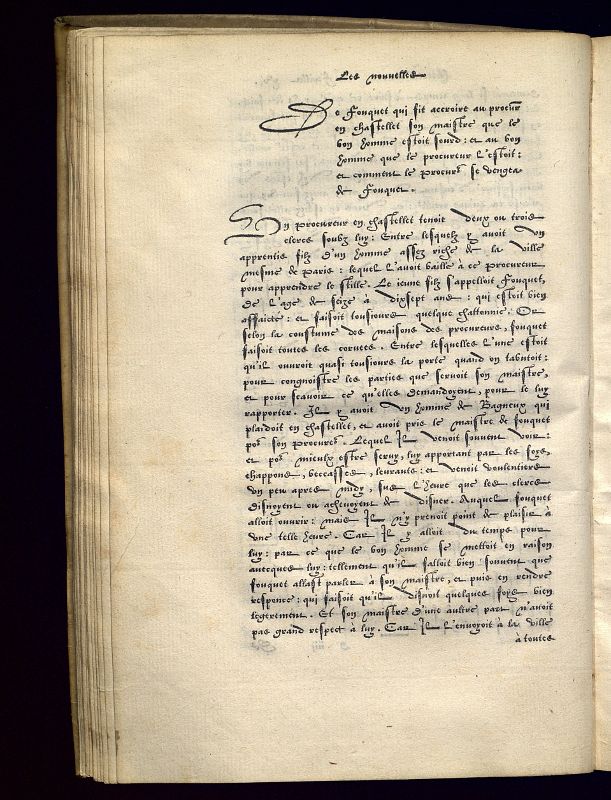 Les nouvelles
De Fouquet qui fit accroire au procur
en chastellet son maistre que le
bon homme estoit sourd: et au bon
homme que le procureur l'estoit:
et comment le procurr se vengea
de Fouquet.
Un procureur en chastellet tenoit deux ou trois
clercs soubz luy: Entre lesquelz y avoit un
apprentis filz d'un homme assez riche de la ville
mesme de Paris: lequel l'avoit baillé à ce procureur
pour apprendre le stille. Le jeune filz s'appelloit Fouquet,
de l'age de seize à dixsept ans: qui estoit bien
affaicté: et faisoit tousiours quelque chattonnie. Or
selon la coustume des maisons des procureurs, fouquet
faisoit toutes les corvees. Entre lesquelles l'une estoit
qu'il ouvroit quasi tousiours la porte quand on tabutoit:
pour congnoistre les parties que servoit son maistre,
et pour scavoir ce qu'elles demandoyent, pour le luy
rapporter. Il y avoit un homme de Bagneux qui
plaidoit en chastellet, et avoit pris le maistre de fouquet
por son procurr. Lequel Il venoit souvent voir:
et por mieulx estre servy, luy apportant par les foys,
chappons, beccasses, levrauts: et venoit voulentiers
un peu apres midy, sus l'heure que les clercs
disnoyent ou achevoyent de disner. Auquel fouquet
alloit ouvrir: mais Il n'y prenoit point de plaisir à
une telle heure. Car Il y alloit du temps pour
luy: par ce que le bon homme se mettoit en raison
avecques luy: tellement qu'il falloit bien souvent que
fouquet allast parler à son maistre, et puis en rendre
responce: qui faisoit qu'il disnoit quelques foys bien
legerement. Et son maistre d'une aultre part n'avoit
pas grand respect à luy. Car Il l'envoyoit à la ville
à toutes